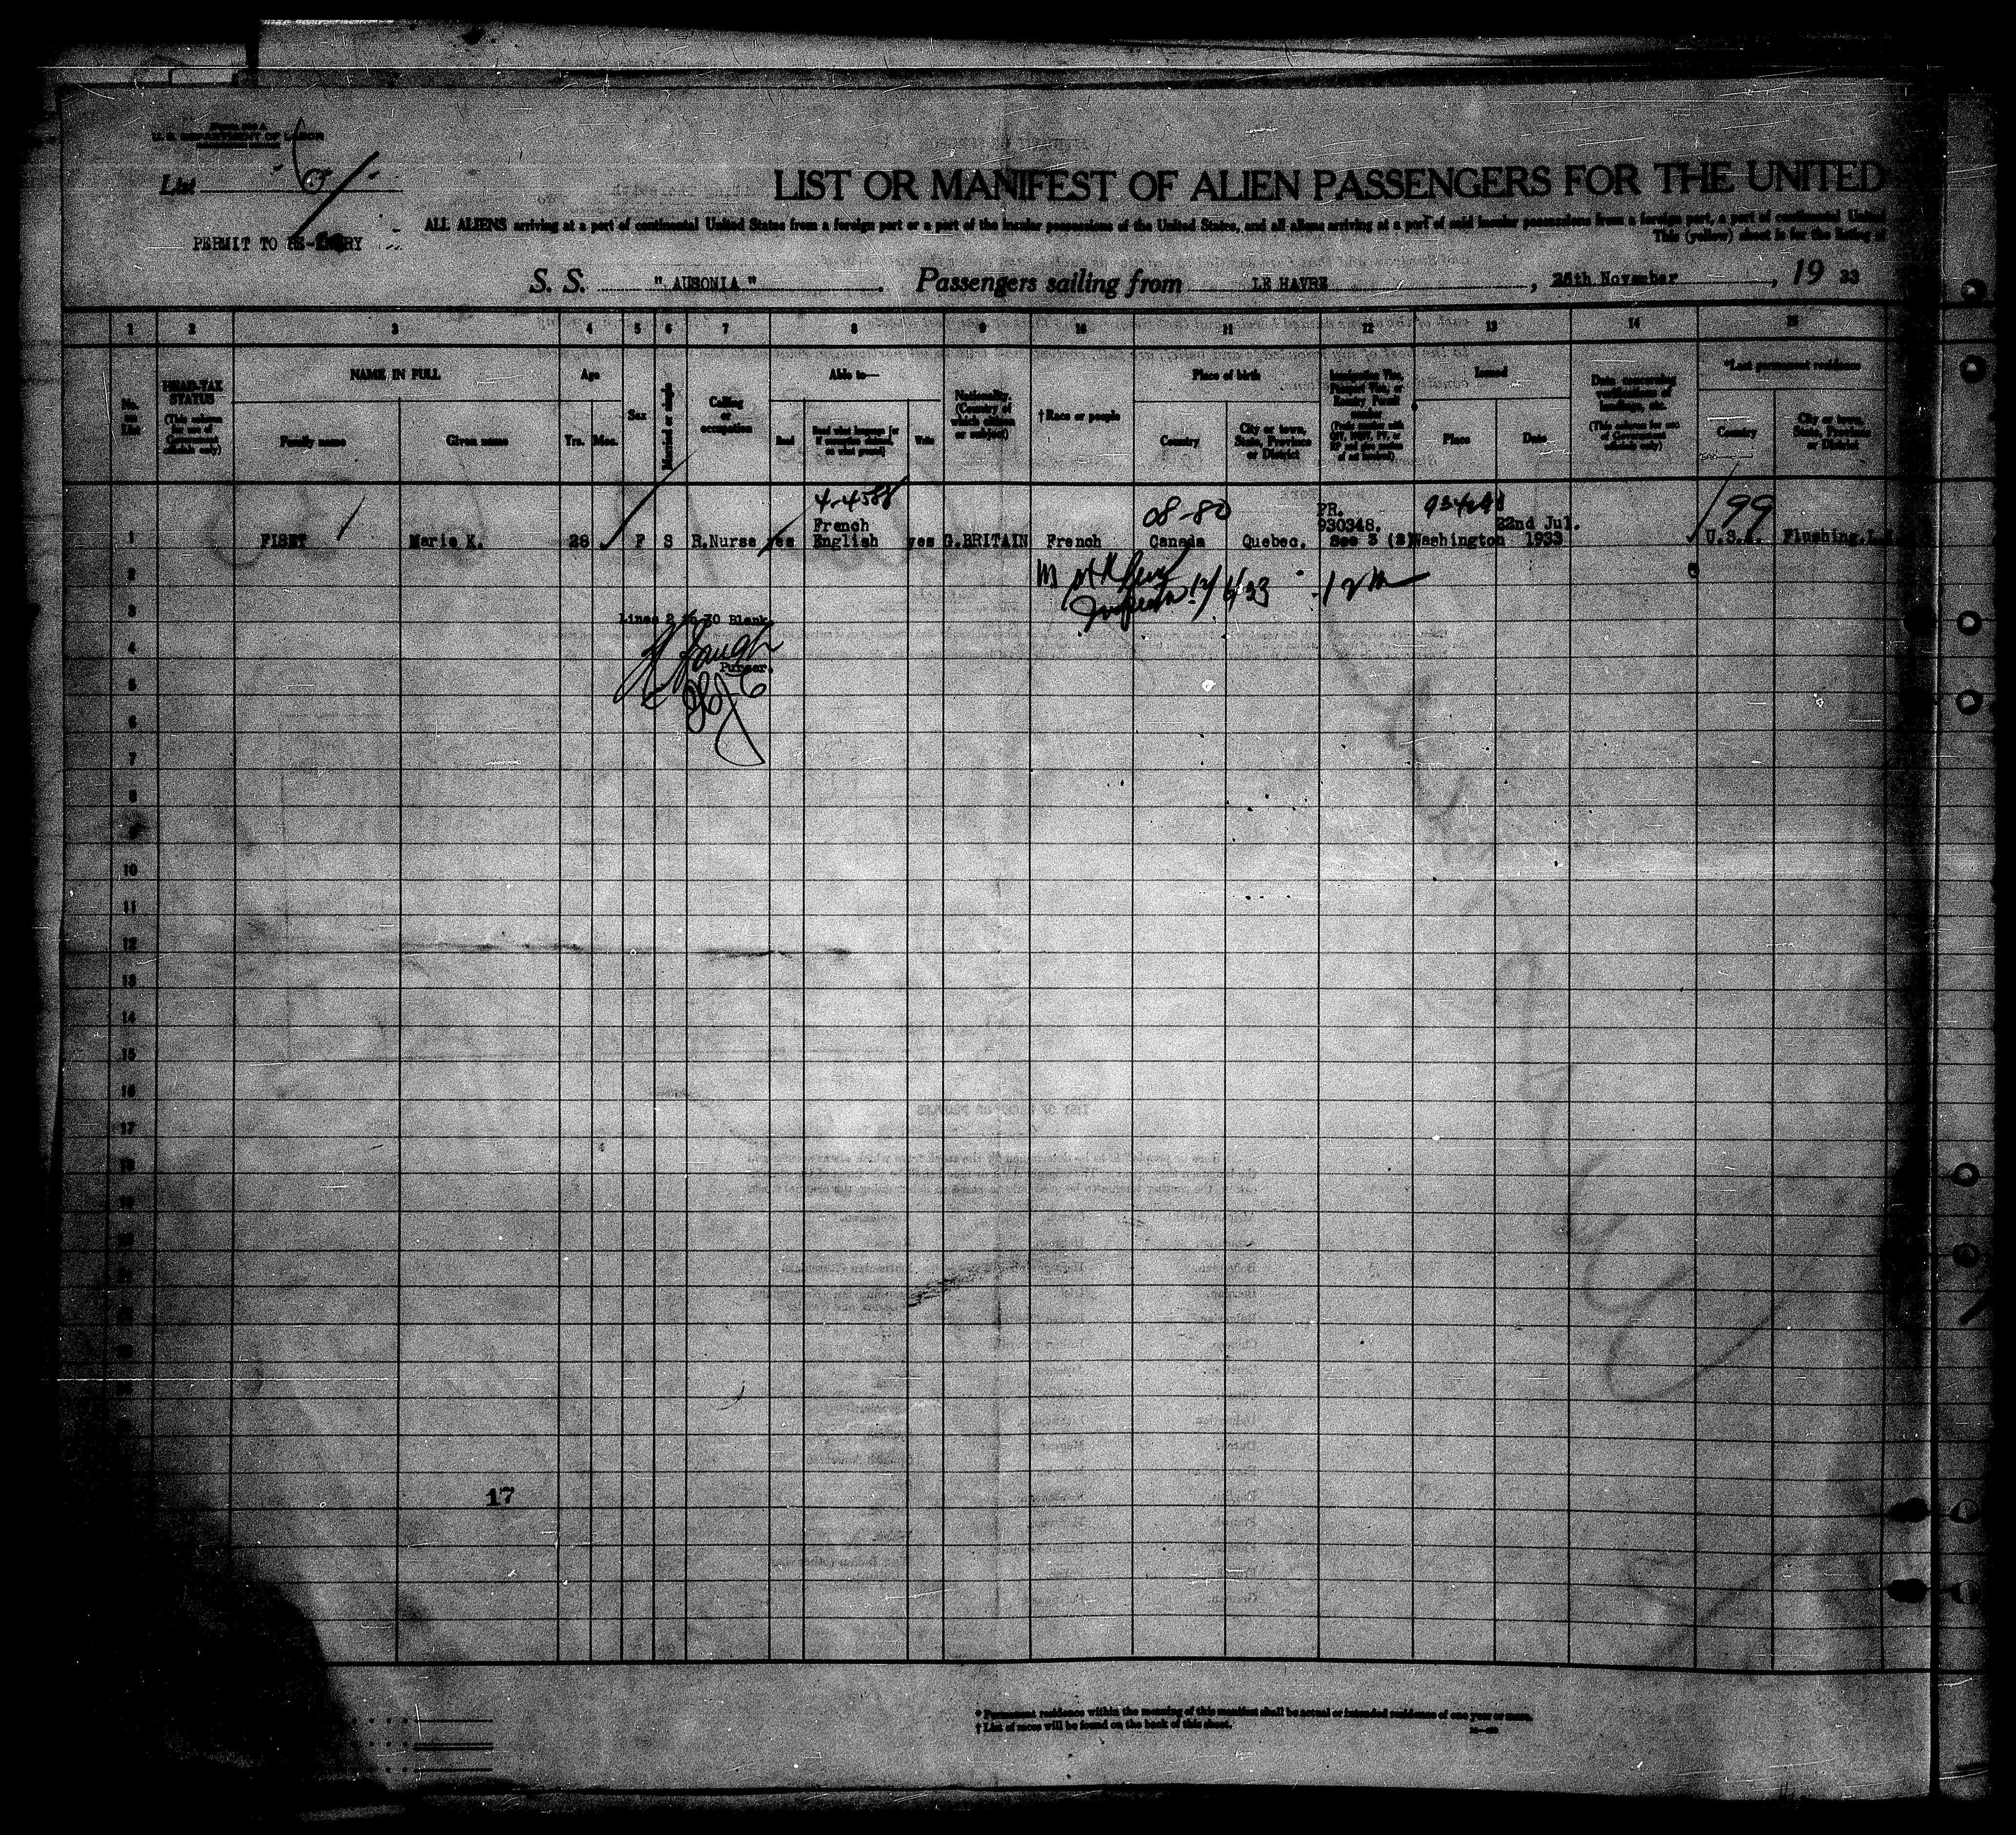 U. S. DEPARTMENT OF LABOR
List 6
LIST OR MANIFEST OF ALIEN PASSENGERS FOR THE UNITED
PERMIT TO RE-ENTRY
ALL ALIENS arriving at a port of continental United States from a foreign port or a port of the insular possessions of the United States, and all aliens arriving at a port of said insular possessions from a foreign port, a port of continental United
This (yellow) sheet is for the listing of
S. S. " AUSONIA " . Passengers sailing from LE HAVRE , 26th November , 19 33
1 2 3 4 5 6 7 8 9 10 11 12 13 14 15
No. on List
HEAD-TAX STATUS
(This column for use of Government officials only)
NAME IN FULL
Family name
Given name
Age
Yrs. Mos.
Sex
Married or single
Calling or occupation
Able to—
Read
Read what language [or if exemption claimed, on what ground]
Write
Nationality. (Country of which citizen or subject)
† Race or people
Place of birth
Country
City or town, State, Province or District
Immigration Visa, Passport Visa, or Reentry Permit number
Issued
Place
Date
Date concerning verification of landings, etc.
(This column for use of Government officials only)
*Last permanent residence
Country
City or town, State, Province or District
1 FISET Marie K. 28 F S R.Nurse yes French English yes G.BRITAIN French Canada Quebec. PR. 930348. Sec 3 (2) Washington 22nd Jul. 1933 U.S.A. Flushing.L.I
08-80
99
2
3
Lines 2 to 30 Blank.
4
Purser.
5
6
7
8
10
11
12
13
14
15
16
17
18
17
* Permanent residence within the meaning of this manifest shall be actual or intended residence of one year or more.
† List of races will be found on the back of this sheet.